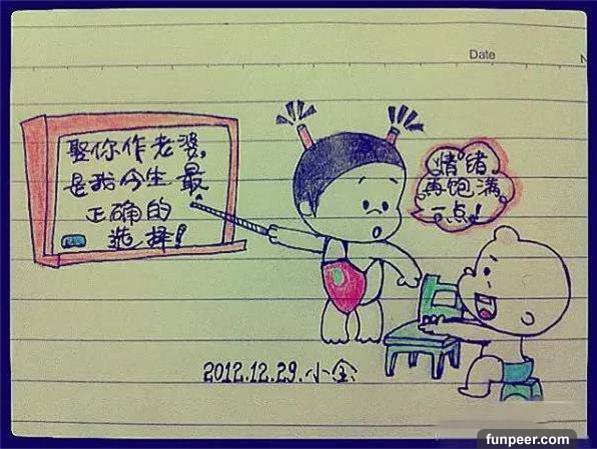 Date
娶你作老婆，
是我今生最
正确的
选择！
情绪
再饱满
一点！
2012.12.29.小全
funpeer.com